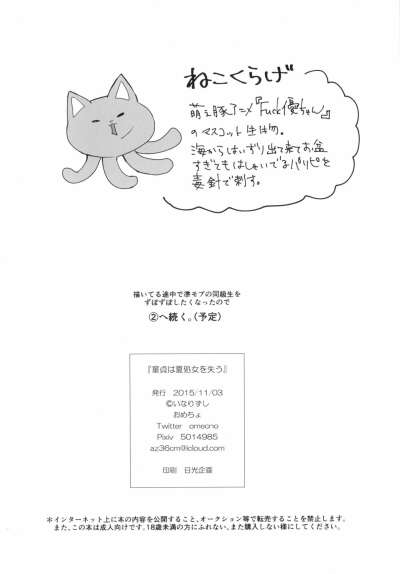 ねこくらげ
萌え豚アニメ『Fuck優ちゃん』
のマスコット生物。
海からはいずり出て来てお盆
すぎてもはしゃいでるパリピを
毒針で刺す。
描いてる途中で準モブの同級生を
ずぼずぼしたくなったので
②へ続く。(予定)
『童貞は夏処女を失う』
発行 2015/11/03
©いなりずし
おめちょ
Twitter omecno
Pixiv 5014985
az36cm@icloud.com
印刷 日光企画
※インターネット上に本の内容を公開すること、オークション等で転売することを禁止します。
また、この本は成人向けです。18歳未満の方にふれない、また購入しない様にしてください。